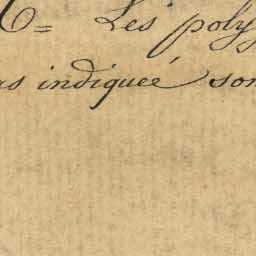 = Les poly
as indiqueé son